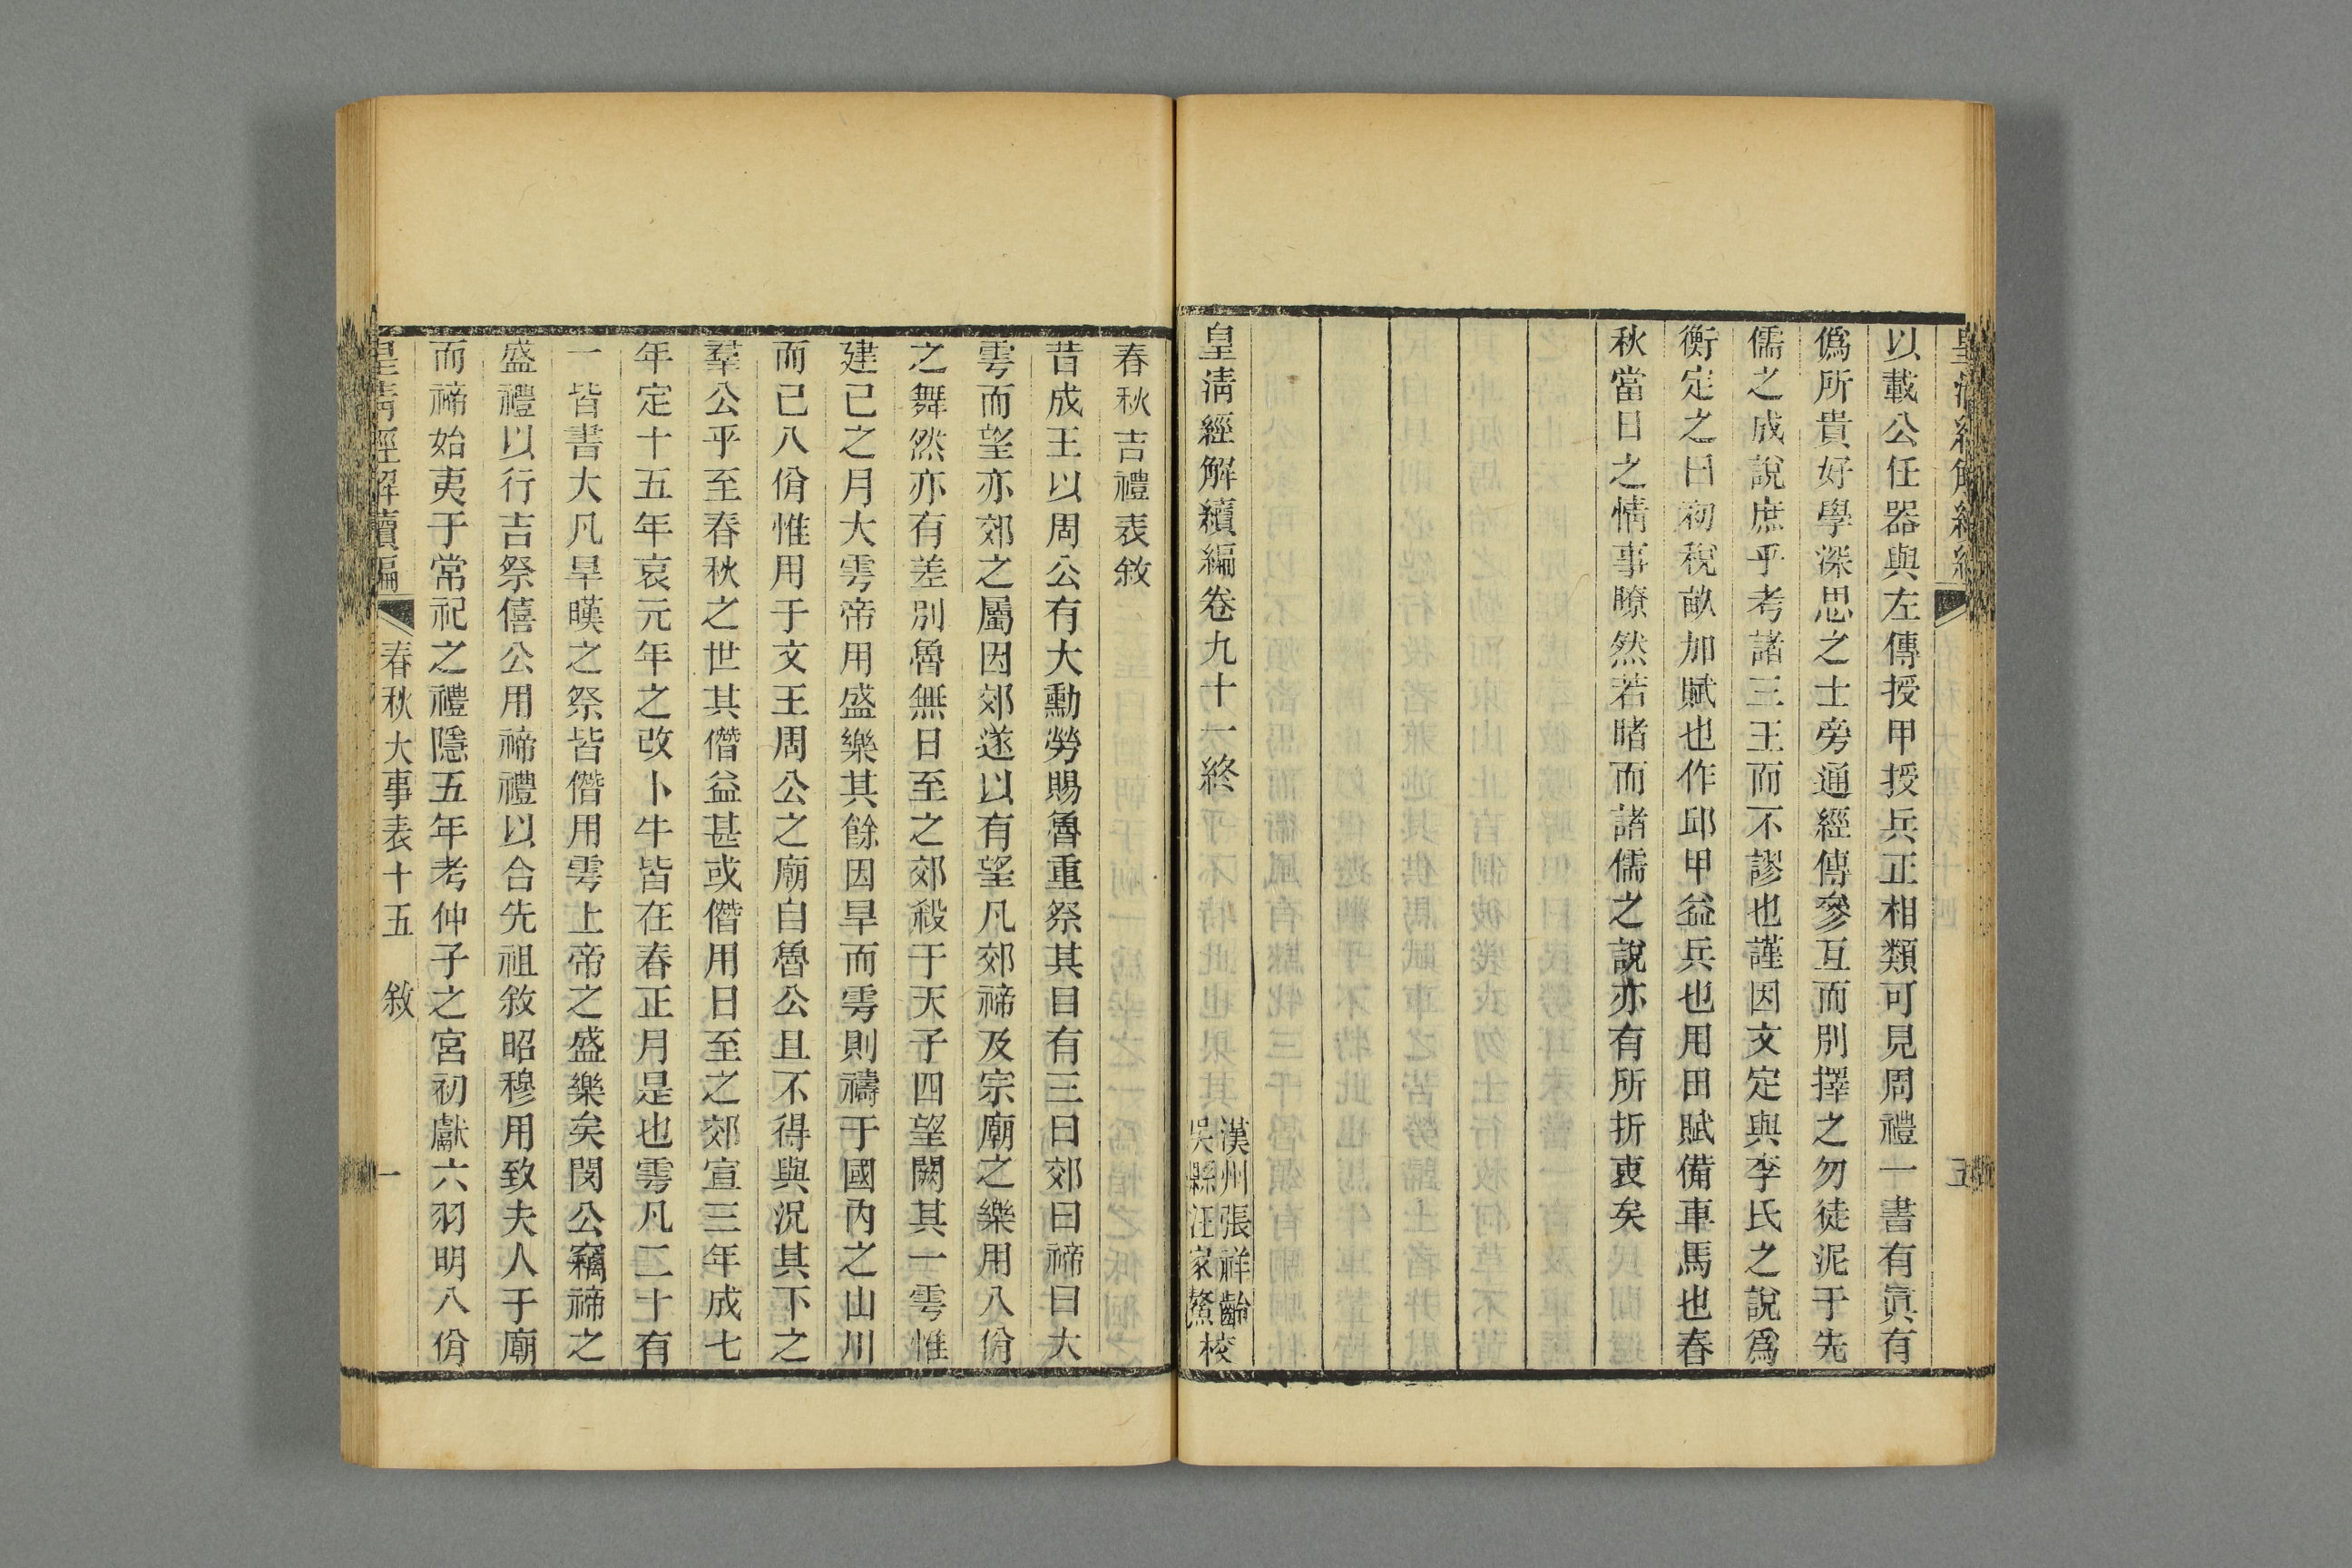 以載公任器與左傳授甲授兵正相類可見周禮一書有眞有
僞所貴好學深思之士旁通經傳參互而別擇之勿徒泥于先
儒之成說庶乎考諸三王而不謬也謹因文定與李氏之說爲
衡定之曰初稅畝加賦也作邱甲益兵也用田賦備車馬也春
秋當日之情事瞭然若睹而諸儒之說亦有所折衷矣
皇淸經解續編卷九十一終
漢州張祥齡
吳縣汪家鰲校
春秋吉禮表敘
昔成王以周公有大勳勞賜魯重祭其目有三曰郊曰禘曰大
雩而望亦郊之屬因郊遂以有望凡郊禘及宗廟之樂用八佾
之舞然亦有差別魯無日至之郊殺于天子四望闕其一雩惟
建巳之月大雩帝用盛樂其餘因旱而雩則禱于國內之山川
而已八佾惟用于文王周公之廟自魯公且不得與況其下之
羣公乎至春秋之世其僭益甚或僭用日至之郊宣三年成七
年定十五年哀元年之改卜牛皆在春正月是也雩凡二十有
一皆書大凡旱暵之祭皆僭用雩上帝之盛樂矣閔公竊禘之
盛禮以行吉祭僖公用禘禮以合先祖敘昭穆用致夫人于廟
而禘始夷于常祀之禮隱五年考仲子之宮初獻六羽明八佾
皇淸經解續編 春秋大事表十五 敘 一